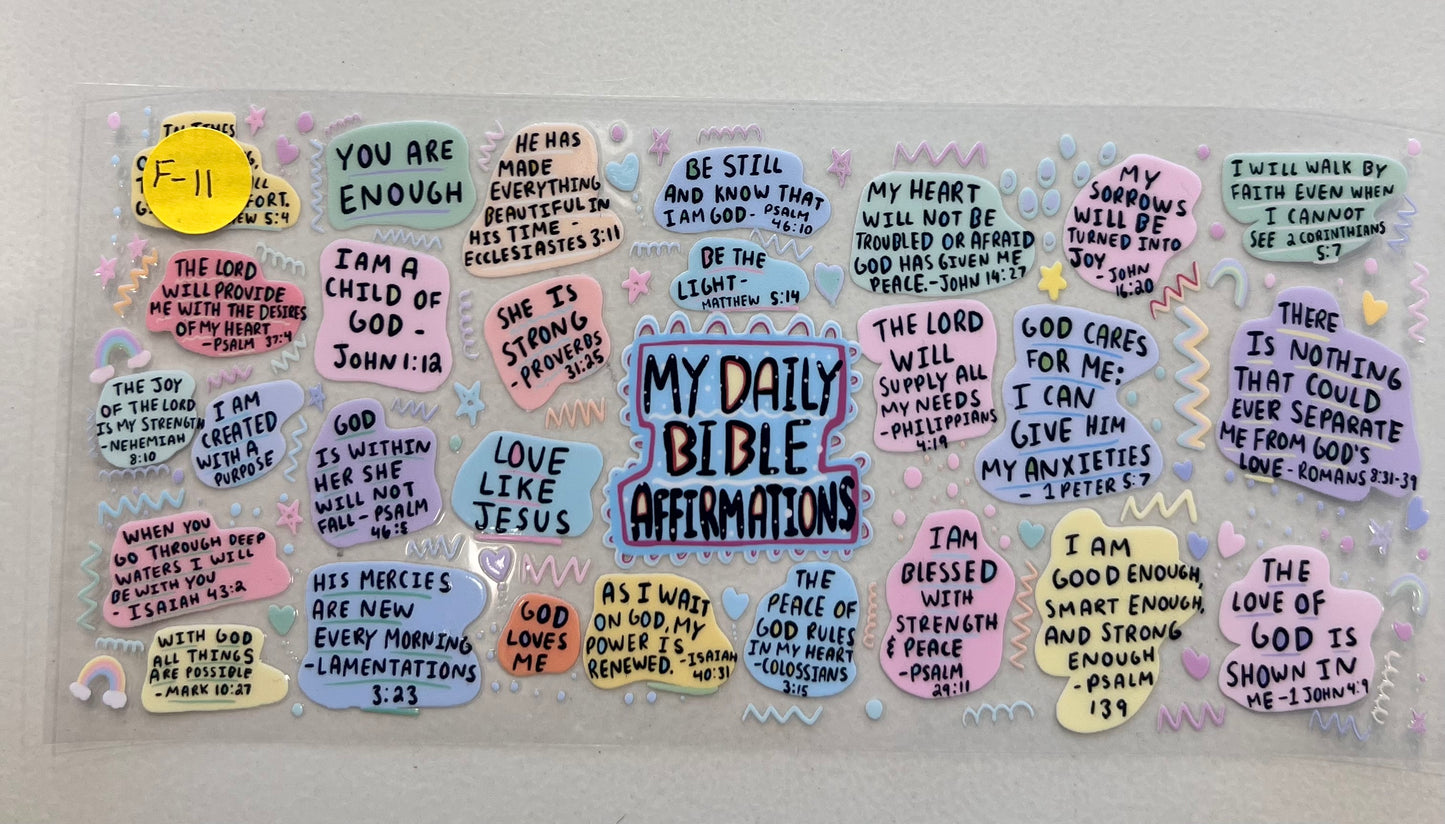 IN TIMES
F-11
FORT.
5:4
YOU ARE
ENOUGH
HE HAS
MADE
EVERYTHING
BEAUTIFUL IN
HIS TIME -
ECCLESIASTES 3:11
BE STILL
AND KNOW THAT
I AM GOD - PSALM
46:10
BE THE
LIGHT -
MATTHEW 5:14
MY HEART
WILL NOT BE
TROUBLED OR AFRAID
GOD HAS GIVEN ME
PEACE. - JOHN 14:27
MY
SORROWS
WILL BE
TURNED INTO
JOY
- JOHN
16:20
I WILL WALK BY
FAITH EVEN WHEN
I CANNOT
SEE 2 CORINTHIANS
5:7
THE LORD
WILL PROVIDE
ME WITH THE DESIRES
OF MY HEART
- PSALM 37:4
I AM A
CHILD OF
GOD -
JOHN 1:12
SHE IS
STRONG
- PROVERBS
31:25
MY DAILY
BIBLE
AFFIRMATIONS
THE LORD
WILL
SUPPLY ALL
MY NEEDS
- PHILIPPIANS
4:19
GOD CARES
FOR ME;
I CAN
GIVE HIM
MY ANXIETIES
- 1 PETER 5:7
THERE
IS NOTHING
THAT COULD
EVER SEPARATE
ME FROM GOD'S
LOVE - ROMANS 8:31-39
THE JOY
OF THE LORD
IS MY STRENGTH
- NEHEMIAH
8:10
I AM
CREATED
WITH A
PURPOSE
GOD
IS WITHIN
HER SHE
WILL NOT
FALL - PSALM
46:5
LOVE
LIKE
JESUS
WHEN YOU
GO THROUGH DEEP
WATERS I WILL
BE WITH YOU
- ISAIAH 43:2
WITH GOD
ALL THINGS
ARE POSSIBLE
- MARK 10:27
HIS MERCIES
ARE NEW
EVERY MORNING
- LAMENTATIONS
3:23
GOD
LOVES
ME
AS I WAIT
ON GOD, MY
POWER IS
RENEWED. - ISAIAH
40:31
THE
PEACE OF
GOD RULES
IN MY HEART
- COLOSSIANS
3:15
I AM
BLESSED
WITH
STRENGTH
& PEACE
- PSALM
29:11
I AM
GOOD ENOUGH,
SMART ENOUGH,
AND STRONG
ENOUGH
- PSALM
139
THE
LOVE OF
GOD IS
SHOWN IN
ME - 1 JOHN 4:9